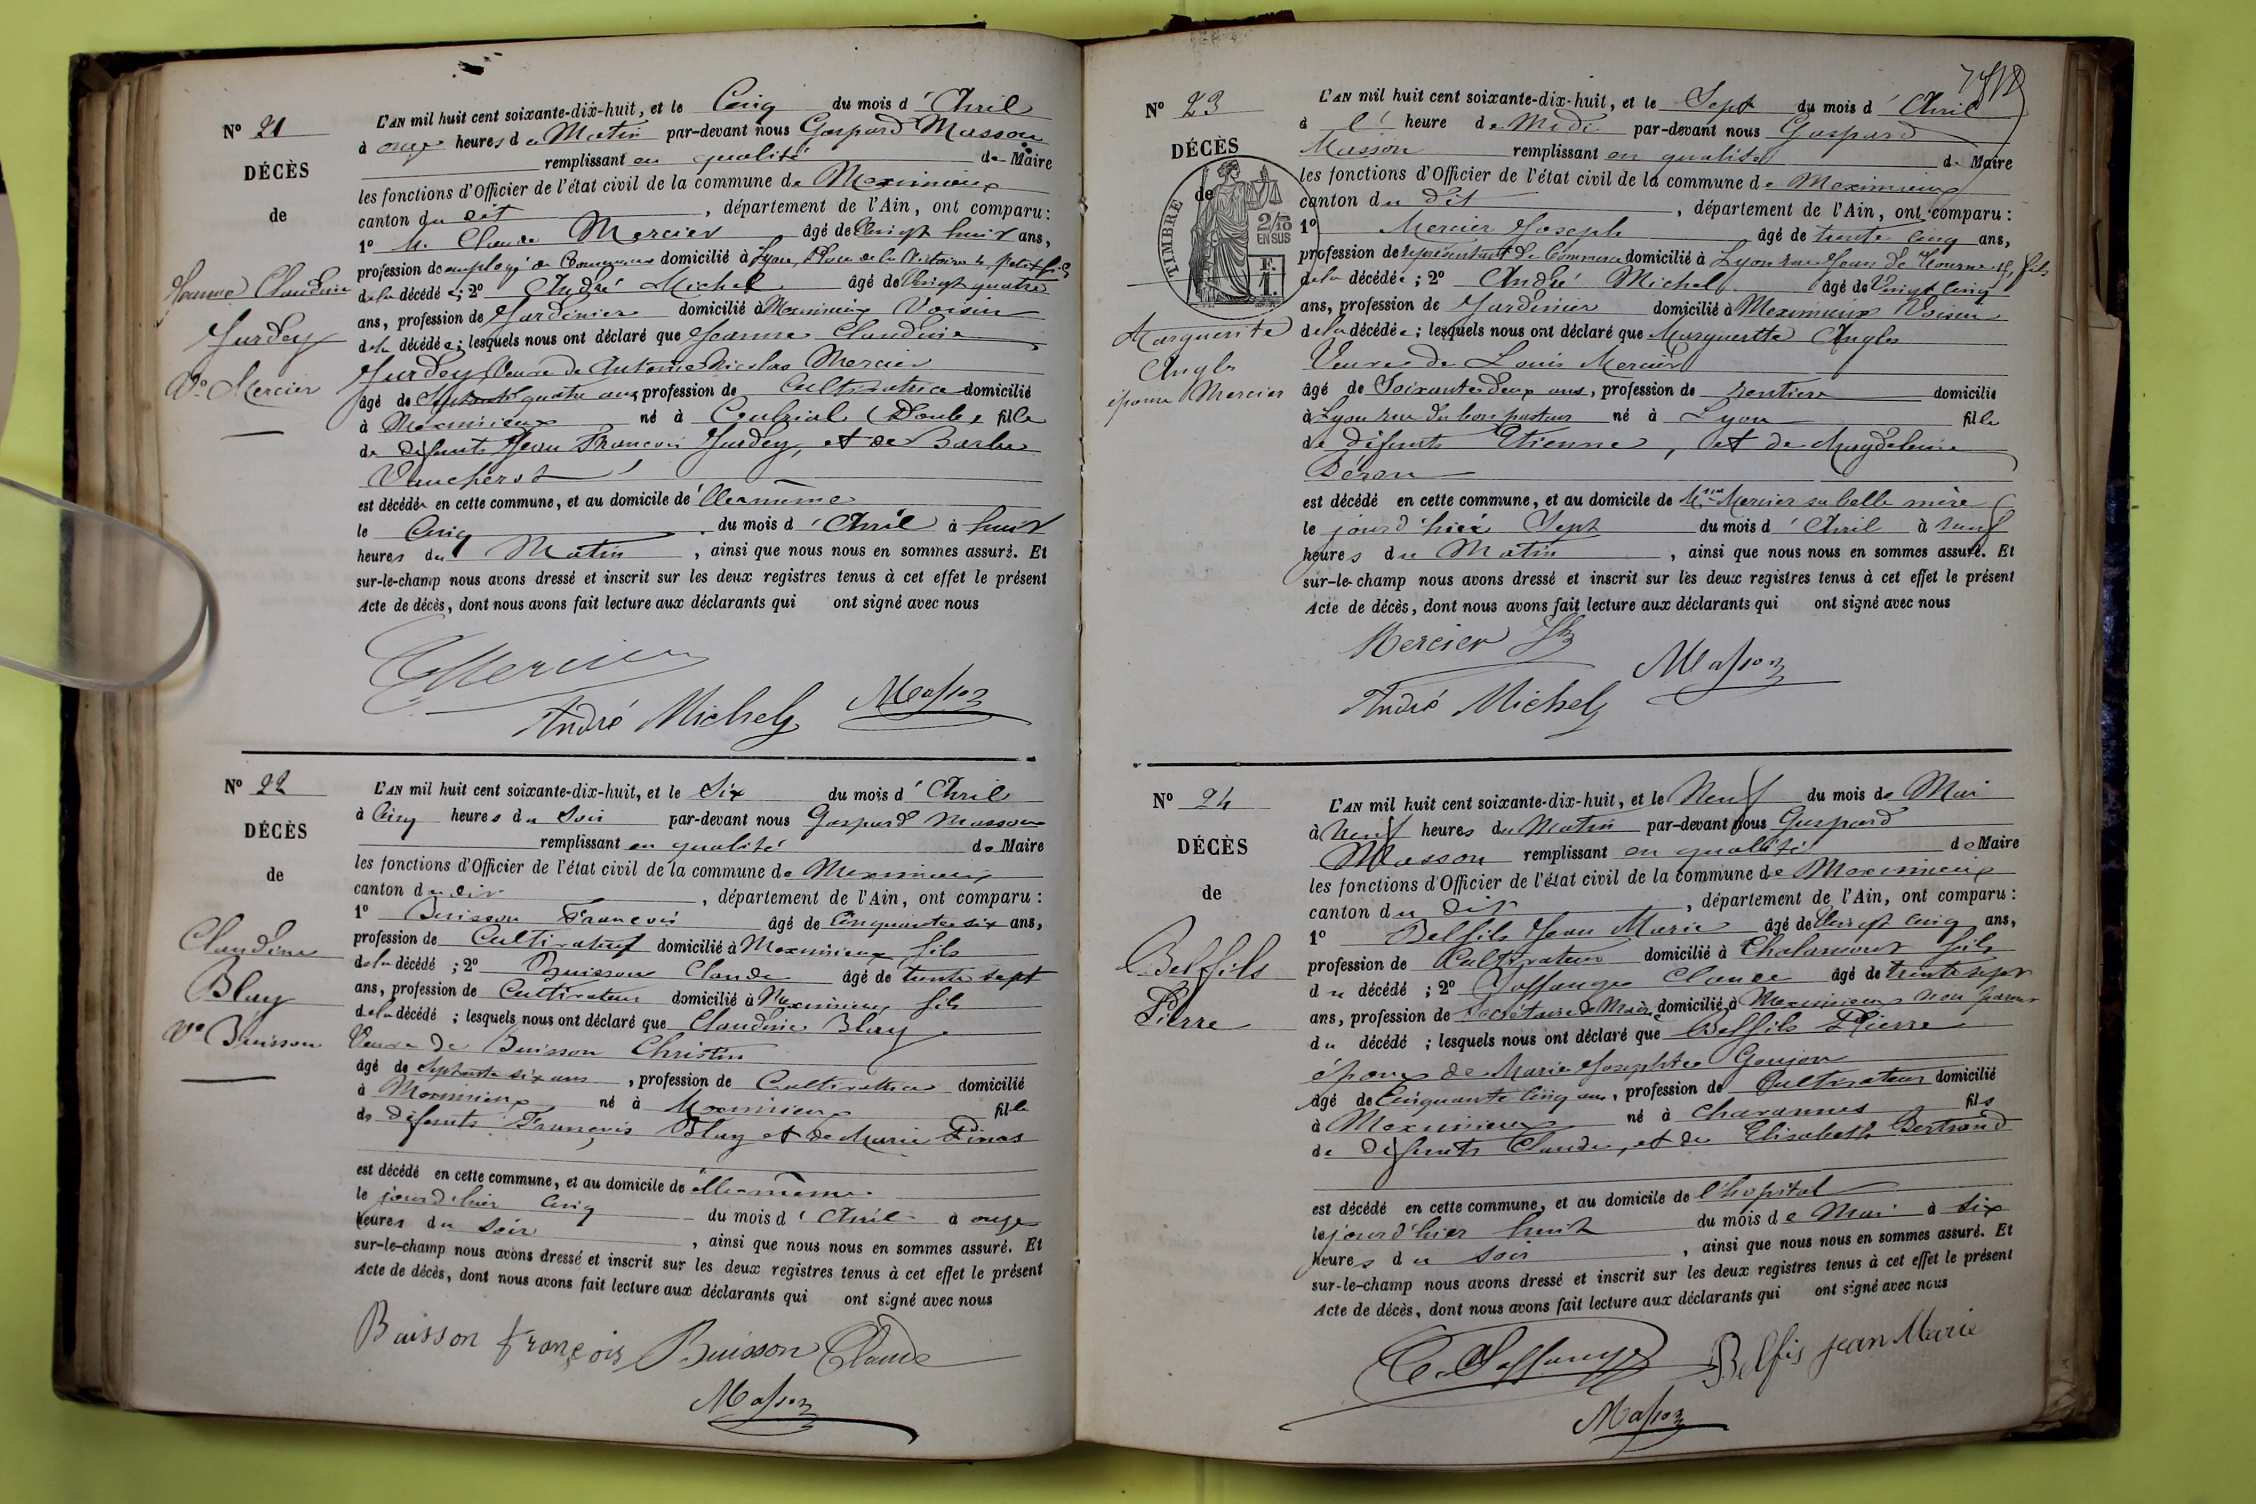 N° 21
DÉCÈS
de
Jeanne Claudine
Jurdey
Ve Mercier
L'AN mil huit cent soixante-dix-huit, et le Cinq du mois d'Avril
à onze heures du Matin par-devant nous Gaspard Masson
remplissant en qualité de Maire
les fonctions d'Officier de l'état civil de la commune de Meximieux
canton du dit, département de l'Ain, ont comparu :
1° M. Claude Mercier âgé de Vingt huit ans,
profession de employé de Commerce domicilié à Lyon, Place de la Victoire petit fils
de la décédée ; 2° André Michel âgé de Vingt quatre
ans, profession de Jardinier domicilié à Meximieux Voisin
de la décédée ; lesquels nous ont déclaré que Jeanne Claudine
Jurdey Veuve de Antoine Nicolas Mercier
âgé de quatre ans, profession de Cultivatrice domicilié
à Meximieux né à (Doubs) fille
de défunts Jean François Jurdey, et de Barbe
est décédée en cette commune, et au domicile de Elle même
le Cinq du mois d'Avril à huit
heures du Matin, ainsi que nous nous en sommes assuré. Et
sur-le-champ nous avons dressé et inscrit sur les deux registres tenus à cet effet le présent
Acte de décès, dont nous avons fait lecture aux déclarants qui ont signé avec nous
Mercier
André Michel Masson
N° 22
DÉCÈS
de
Claudine
Blay
Ve Buisson
L'AN mil huit cent soixante-dix-huit, et le Six du mois d'Avril
à Cinq heures du Soir par-devant nous Gaspard Masson
remplissant en qualité de Maire
les fonctions d'Officier de l'état civil de la commune de Meximieux
canton du dit, département de l'Ain, ont comparu :
1° Buisson François âgé de Cinquante six ans,
profession de Cultivateur domicilié à Meximieux fils
de la décédé ; 2° Buisson Claude âgé de trente sept
ans, profession de Cultivateur domicilié à Meximieux fils
de la décédé ; lesquels nous ont déclaré que Claudine Blay
Veuve de Buisson Christin
âgé de Septante six ans, profession de Cultivatrice domicilié
à Meximieux né à Meximieux fille
de défunts François Blay et de Marie Pinas
est décédé en cette commune, et au domicile de elle même
le jourd'hier Cinq du mois d'Avril à onze
heures du Soir, ainsi que nous nous en sommes assuré. Et
sur-le-champ nous avons dressé et inscrit sur les deux registres tenus à cet effet le présent
Acte de décès, dont nous avons fait lecture aux déclarants qui ont signé avec nous
Buisson françois Buisson Claude
Masson
N° 23
DÉCÈS
de
TIMBRE
2/10
EN SUS
F.
1.
Marguerite
Angle
épouse Mercier
L'AN mil huit cent soixante-dix-huit, et le Sept du mois d'Avril
à 1 heure de Midi par-devant nous Gaspard
Masson remplissant en qualité de Maire
les fonctions d'Officier de l'état civil de la commune de Meximieux
canton du dit, département de l'Ain, ont comparu :
1° Mercier Joseph âgé de trente cinq ans,
profession de représentant de Commerce domicilié à Lyon rue Jean de Tournes fils
de la décédée ; 2° André Michel âgé de Vingt cinq
ans, profession de Jardinier domicilié à Meximieux Voisin
de la décédée ; lesquels nous ont déclaré que Marguerite Angles
Veuve de Louis Mercier
âgé de Soixante deux ans, profession de rentière domicilié
à Lyon rue du bon pasteur né à Lyon fille
de défunts Etienne, et de Magdeleine
est décédé en cette commune, et au domicile de Mme Mercier sa belle mère
le jourd'hui Sept du mois d'Avril à neuf
heures du Matin, ainsi que nous nous en sommes assuré. Et
sur-le-champ nous avons dressé et inscrit sur les deux registres tenus à cet effet le présent
Acte de décès, dont nous avons fait lecture aux déclarants qui ont signé avec nous
Mercier Jh
Masson
André Michel
N° 24
DÉCÈS
de
Belfils
Pierre
L'AN mil huit cent soixante-dix-huit, et le Neuf du mois de Mai
à Neuf heures du Matin par-devant nous Gaspard
Masson remplissant en qualité de Maire
les fonctions d'Officier de l'état civil de la commune de Meximieux
canton du dit, département de l'Ain, ont comparu :
1° Belfils Jean Marie âgé de Vingt cinq ans,
profession de Cultivateur domicilié à Chalamont fils
du décédé ; 2° Claude âgé de trente sept
ans, profession de Secrétaire de Mairie domicilié à Meximieux non parent
du décédé ; lesquels nous ont déclaré que Belfils Pierre
époux de Marie Josephte Goujon
âgé de Cinquante cinq ans, profession de Cultivateur domicilié
à Meximieux né à Charannes fils
de défunts Claude, et de Elisabeth Bertrand
est décédé en cette commune, et au domicile de l'hopital
le jourd'hier huit du mois de Mai à six
heures du soir, ainsi que nous nous en sommes assuré. Et
sur-le-champ nous avons dressé et inscrit sur les deux registres tenus à cet effet le présent
Acte de décès, dont nous avons fait lecture aux déclarants qui ont signé avec nous
Belfis jean Marie
Masson